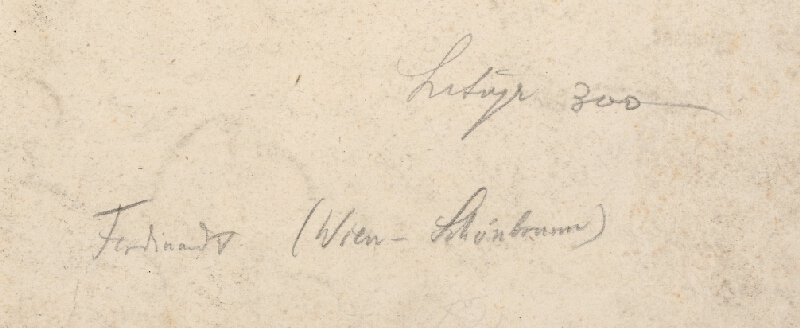 300
Ferdinandt (Wien - Schönbrunn)